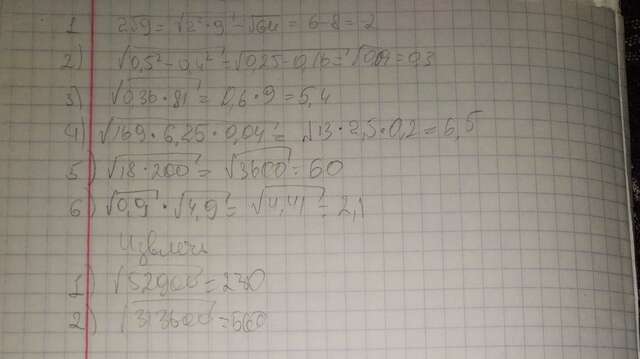 1 2√9 = √2² · 9 - √64 = 6 - 8 = -2
2) √0,5² - 0,4² = √0,25 - 0,16 = √0,09 = 0,3
3) √0,36 · 81 = 0,6 · 9 = 5,4
4) √169 · 6,25 · 0,04 = √13 · 2,5 · 0,2 = 6,5
5) √18 · 200 = √3600 = 60
6) √0,9 · √4,9 = √4,41 = 2,1
1) √52900 = 230
2) √313600 = 560